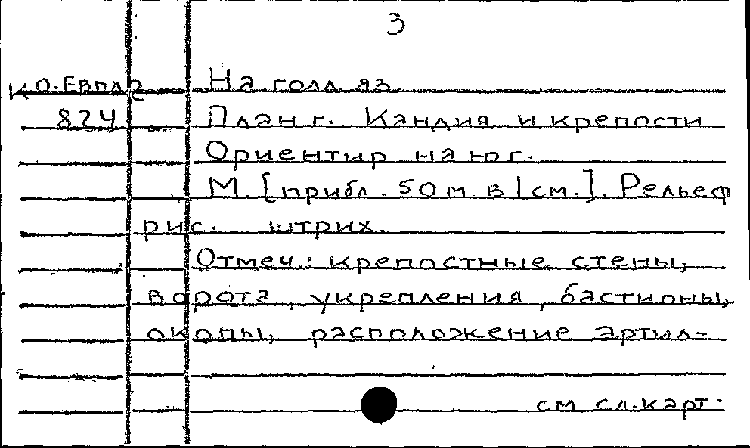 3
К О.Евпл 2 На голл яз.
824 План г. Кандия и крепости
Ориентир на юг.
М. [прибл. 50 м в 1 см.]. Рельеф
рис. штрих.
Отмеч.: крепостные стены,
ворота, укрепления, бастионы,
окопы, расположение артил-
см сл. карт.